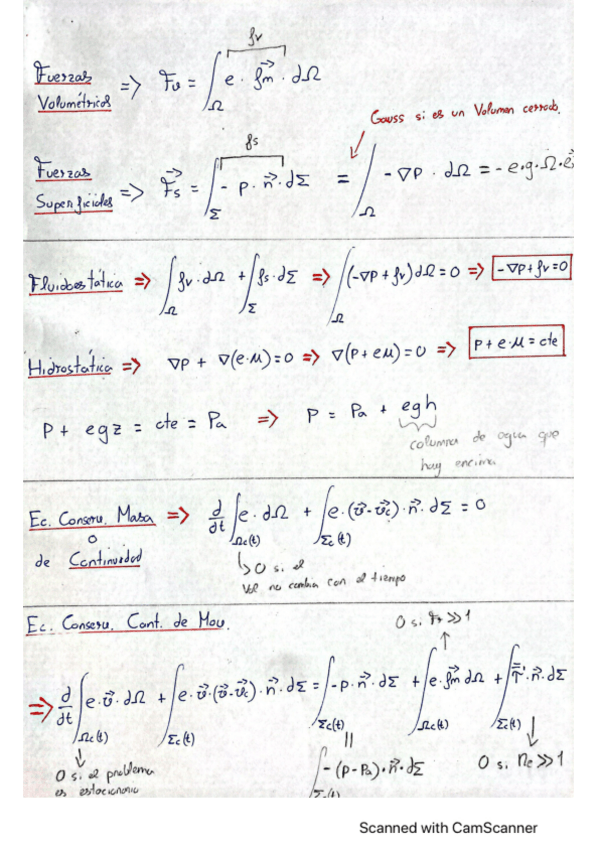 fv
Fuerzas Volumétricas => Fv = ∫_Ω e · f⃗m · dΩ
Gauss si es un Volumen cerrado.
fs
Fuerzas Superficiales => F⃗s = ∫_Σ - p · n⃗ · dΣ = ∫_Ω - ∇P · dΩ = - e·g·Ω·e⃗
Fluidoestática => ∫_Ω fv · dΩ + ∫_Σ fs · dΣ => ∫_Ω (-∇P + fv) dΩ = 0 => -∇P + fv = 0
Hidrostática => ∇P + ∇(e·M) = 0 => ∇(P + eM) = 0 => P + e·M = cte
P + egz = cte = Pa => P = Pa + egh
columna de agua que
hay encima
Ec. Conserv. Masa => d/dt ∫_Ωc(t) e · dΩ + ∫_Σc(t) e · (v⃗ - v⃗c) · n⃗ · dΣ = 0
o
de Continuidad
↳ 0 si el
Vol no cambia con el tiempo
Ec. Conserv. Cant. de Mov.
0 si Fr >> 1
=> d/dt ∫_Ωc(t) e · v⃗ · dΩ + ∫_Σc(t) e · v⃗ · (v⃗ - v⃗c) · n⃗ · dΣ = ∫_Σc(t) -p · n⃗ · dΣ + ∫_Ωc(t) e · f⃗m dΩ + ∫_Σc(t) T̿' · n⃗ · dΣ
0 si el problema
es estacionario
∫_Σc(t) -(P - Pa) · n⃗ · dΣ
0 si Re >> 1
Scanned with CamScanner